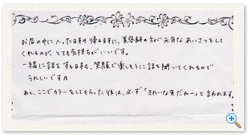 お店の中に入った時や帰る時に、美容師の方が元気なあいさつをして
くれるのが、とても気持ちがいいです。
一緒に話をする時も、笑顔で楽しそうに話を聞いてくれるので
うれしいです!!
あと、ここでカラーをしてもらった後は、必ず「きれいな色だねー」と言われます。